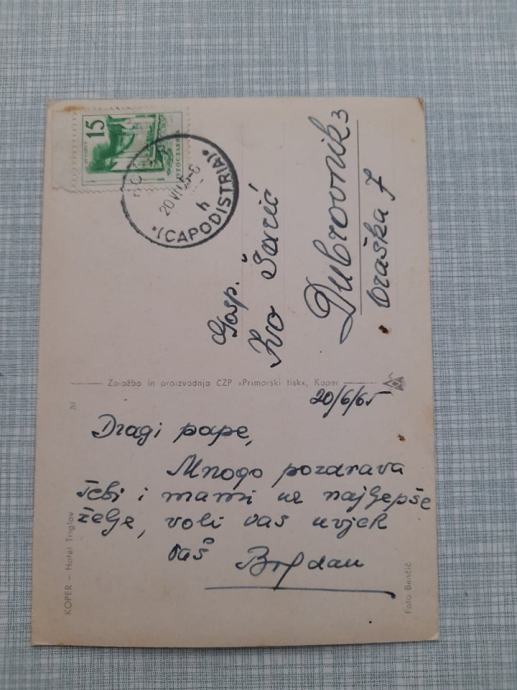 15
(CAPODISTRIA)
20 VI 65-6
h
Gosp.
Ivo Šarić
Dubrovnik 3
Založba in proizvodnja CZP »Primorski tisk«, Koper
20/6/65
Dragi pape,
Mnogo pozdrava
Tebi i mami uz najljepše
želje, voli vas uvjek
vaš Bogdan
KOPER – Hotel Triglav
Foto Benčič